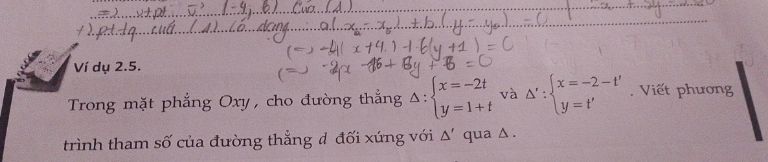 =) vtpt (-4, 6) của (Δ)
+) pt tq của (Δ) có dạng a(x - x₀) + b(y - y₀) = 0
(=) -4(x + 4) + 6(y + 1) = 0
Ví dụ 2.5.
Trong mặt phẳng Oxy, cho đường thẳng Δ: {x = -2t y = 1 + t và Δ': {x = -2 - t' y = t' . Viết phương
trình tham số của đường thẳng d đối xứng với Δ' qua Δ.